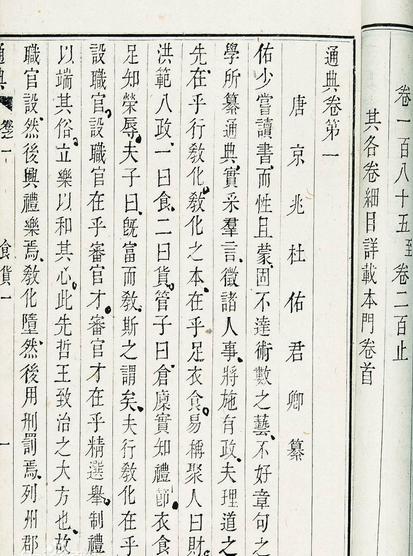 卷一百八十五至卷二百止
其各卷細目詳載本門卷首
通典卷第一
唐京兆杜佑君卿纂
佑少嘗讀書而性且蒙固不達術數之藝不好章句之
學所纂通典實采羣言徵諸人事將施有政夫理道之
先在乎行敎化敎化之本在乎足衣食易稱聚人曰財
洪範八政一曰食二曰貨管子曰倉廩實知禮節衣食
足知榮辱夫子曰旣富而敎斯之謂矣夫行敎化在乎
設職官設職官在乎審官才審官才在乎精選舉制禮
以端其俗立樂以和其心此先哲王致治之大方也故
職官設然後興禮樂焉敎化墮然後用刑罰焉列州郡
通典 卷一 食貨一 一